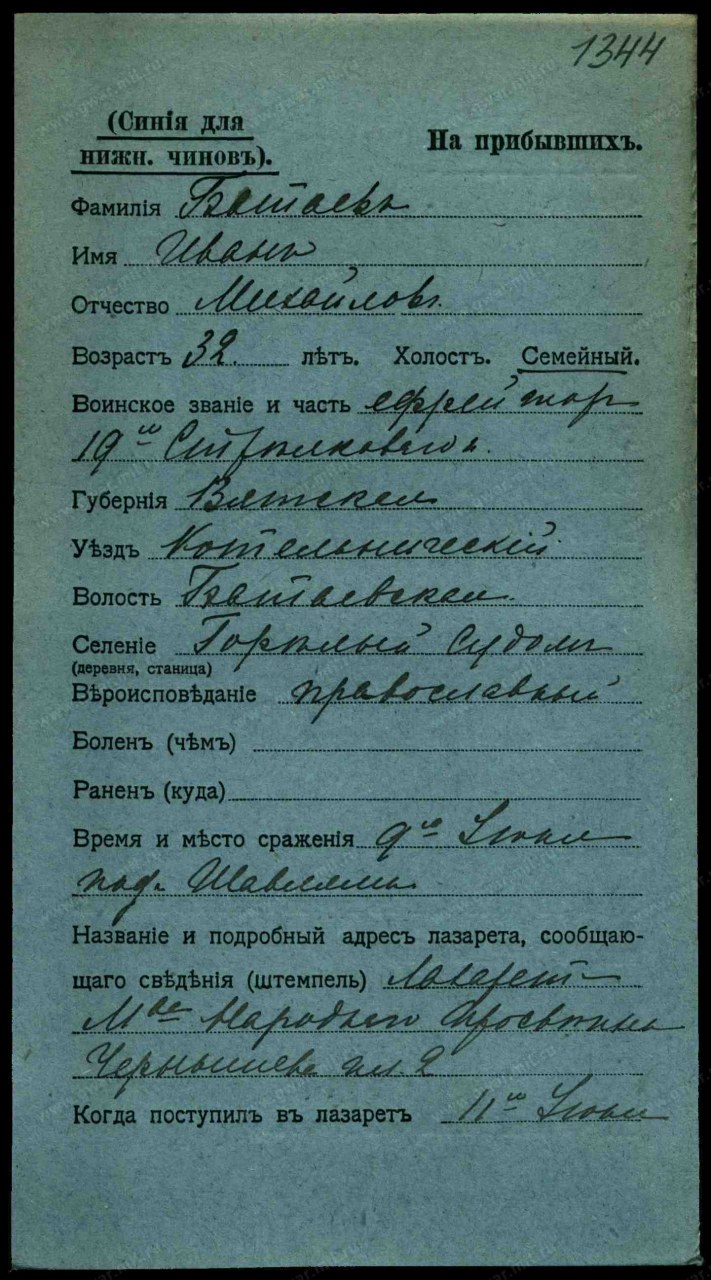 1344
(Синія для
нижн. чиновъ).
На прибывшихъ.
Фамилія Батаевъ
Имя Иванъ
Отчество Михайловъ
Возрастъ 32. лѣтъ. Холостъ. Семейный.
Воинское званіе и часть ефрейторъ
19го Стрѣлковаго п.
Губернія Вятская
Уѣздъ Котельническій
Волость Батаевская
Селеніе Горѣлый
(деревня, станица)
Вѣроисповѣданіе православный
Боленъ (чѣмъ)
Раненъ (куда)
Время и мѣсто сраженія 9го
под. Шавлями
Названіе и подробный адресъ лазарета, сообщаю-
щаго свѣдѣнія (штемпель) Лазарет
Мва Народнаго Просвѣщенія
Чернышева пл. 2
Когда поступилъ въ лазаретъ 11го